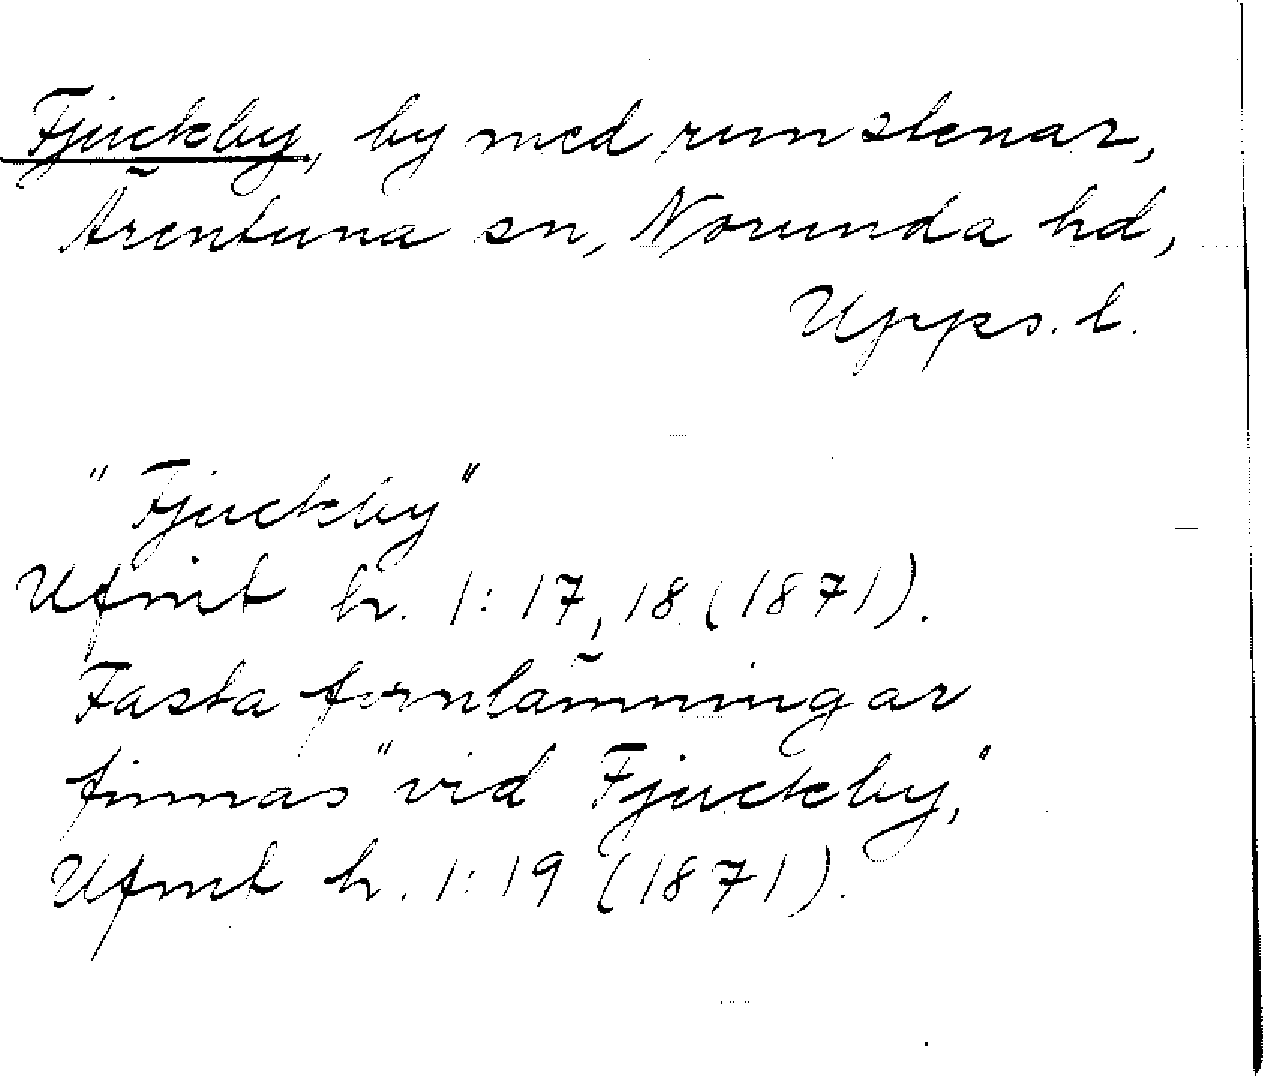 Fjuckby, by med runstenar,
Ärentuna sn, Norunda hd,
Upps. l.
"Fjuckby"
Ufmt h. 1:17, 18 (1871).
Fasta fornlämningar
finnas "vid Fjuckby,"
Ufmt h. 1:19 (1871).